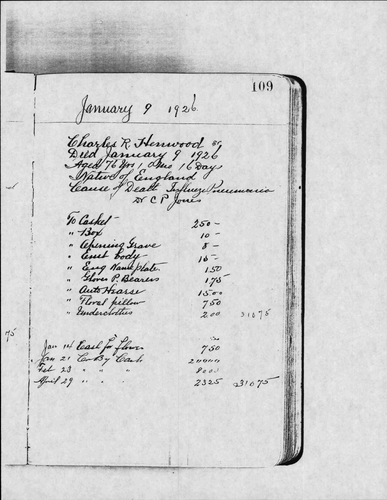 109
January 9 1926
Charles R. Henwood Sr
Died January 9 1926
Aged 76 Yrs 1 Mo 16 Days
Native of England
Cause of Death Influenza Pneumonia
Dr C P Jones
To Casket 250-
" Box 10-
" Opening Grave 8-
" body 15-
" Eng Name plate 150
" Gloves P. Bearers 175
" Auto Hearse 1500
" Floral pillow 750
" Underclothes 200 31075
75
Jan 14 Cash for flower 750
Jan 21 Cr By Cash
Feb 23 " " " 8000
April 29 " " 2325 31075